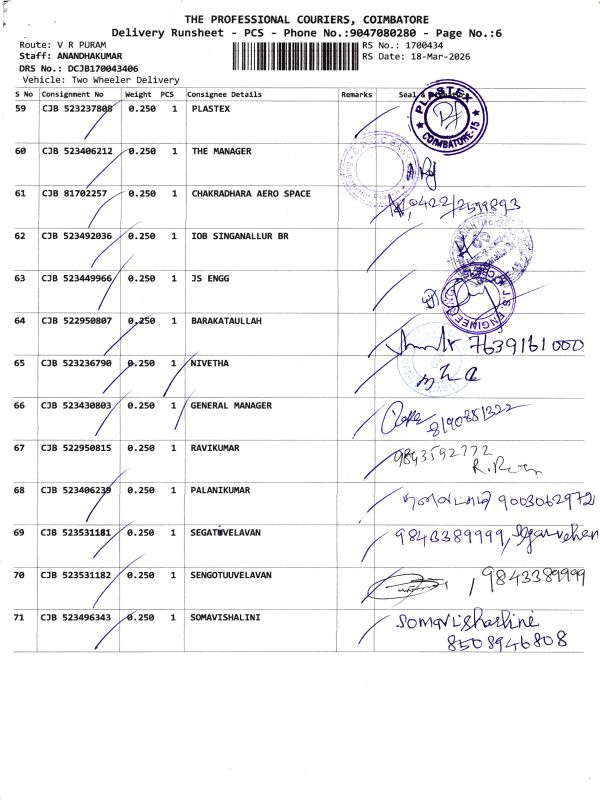 THE PROFESSIONAL COURIERS, COIMBATORE
Delivery Runsheet - PCS - Phone No.:9047080280 - Page No.:6
Route: V R PURAM
RS No.: 1700434
Staff: ANANDHAKUMAR
RS Date: 18-Mar-2026
DRS No.: DCJB170043406
Vehicle: Two Wheeler Delivery
S No Consignment No Weight PCS Consignee Details Remarks Seal &
59 CJB 523237808 0.250 1 PLASTEX PLASTEX COIMBATORE-15
60 CJB 523406212 0.250 1 THE MANAGER
61 CJB 81702257 0.250 1 CHAKRADHARA AERO SPACE 0422/2599893
62 CJB 523492036 0.250 1 IOB SINGANALLUR BR
63 CJB 523449966 0.250 1 JS ENGG
64 CJB 522950807 0.250 1 BARAKATAULLAH 7639161000
65 CJB 523236790 0.250 1 NIVETHA
66 CJB 523430803 0.250 1 GENERAL MANAGER 8190851322
67 CJB 522950815 0.250 1 RAVIKUMAR 9843592772
68 CJB 523406239 0.250 1 PALANIKUMAR 9003062972
69 CJB 523531181 0.250 1 SEGATUVELAVAN 9843389999,
70 CJB 523531182 0.250 1 SENGOTUUVELAVAN , 9843389999
71 CJB 523496343 0.250 1 SOMAVISHALINI Somavishashline
8508946808